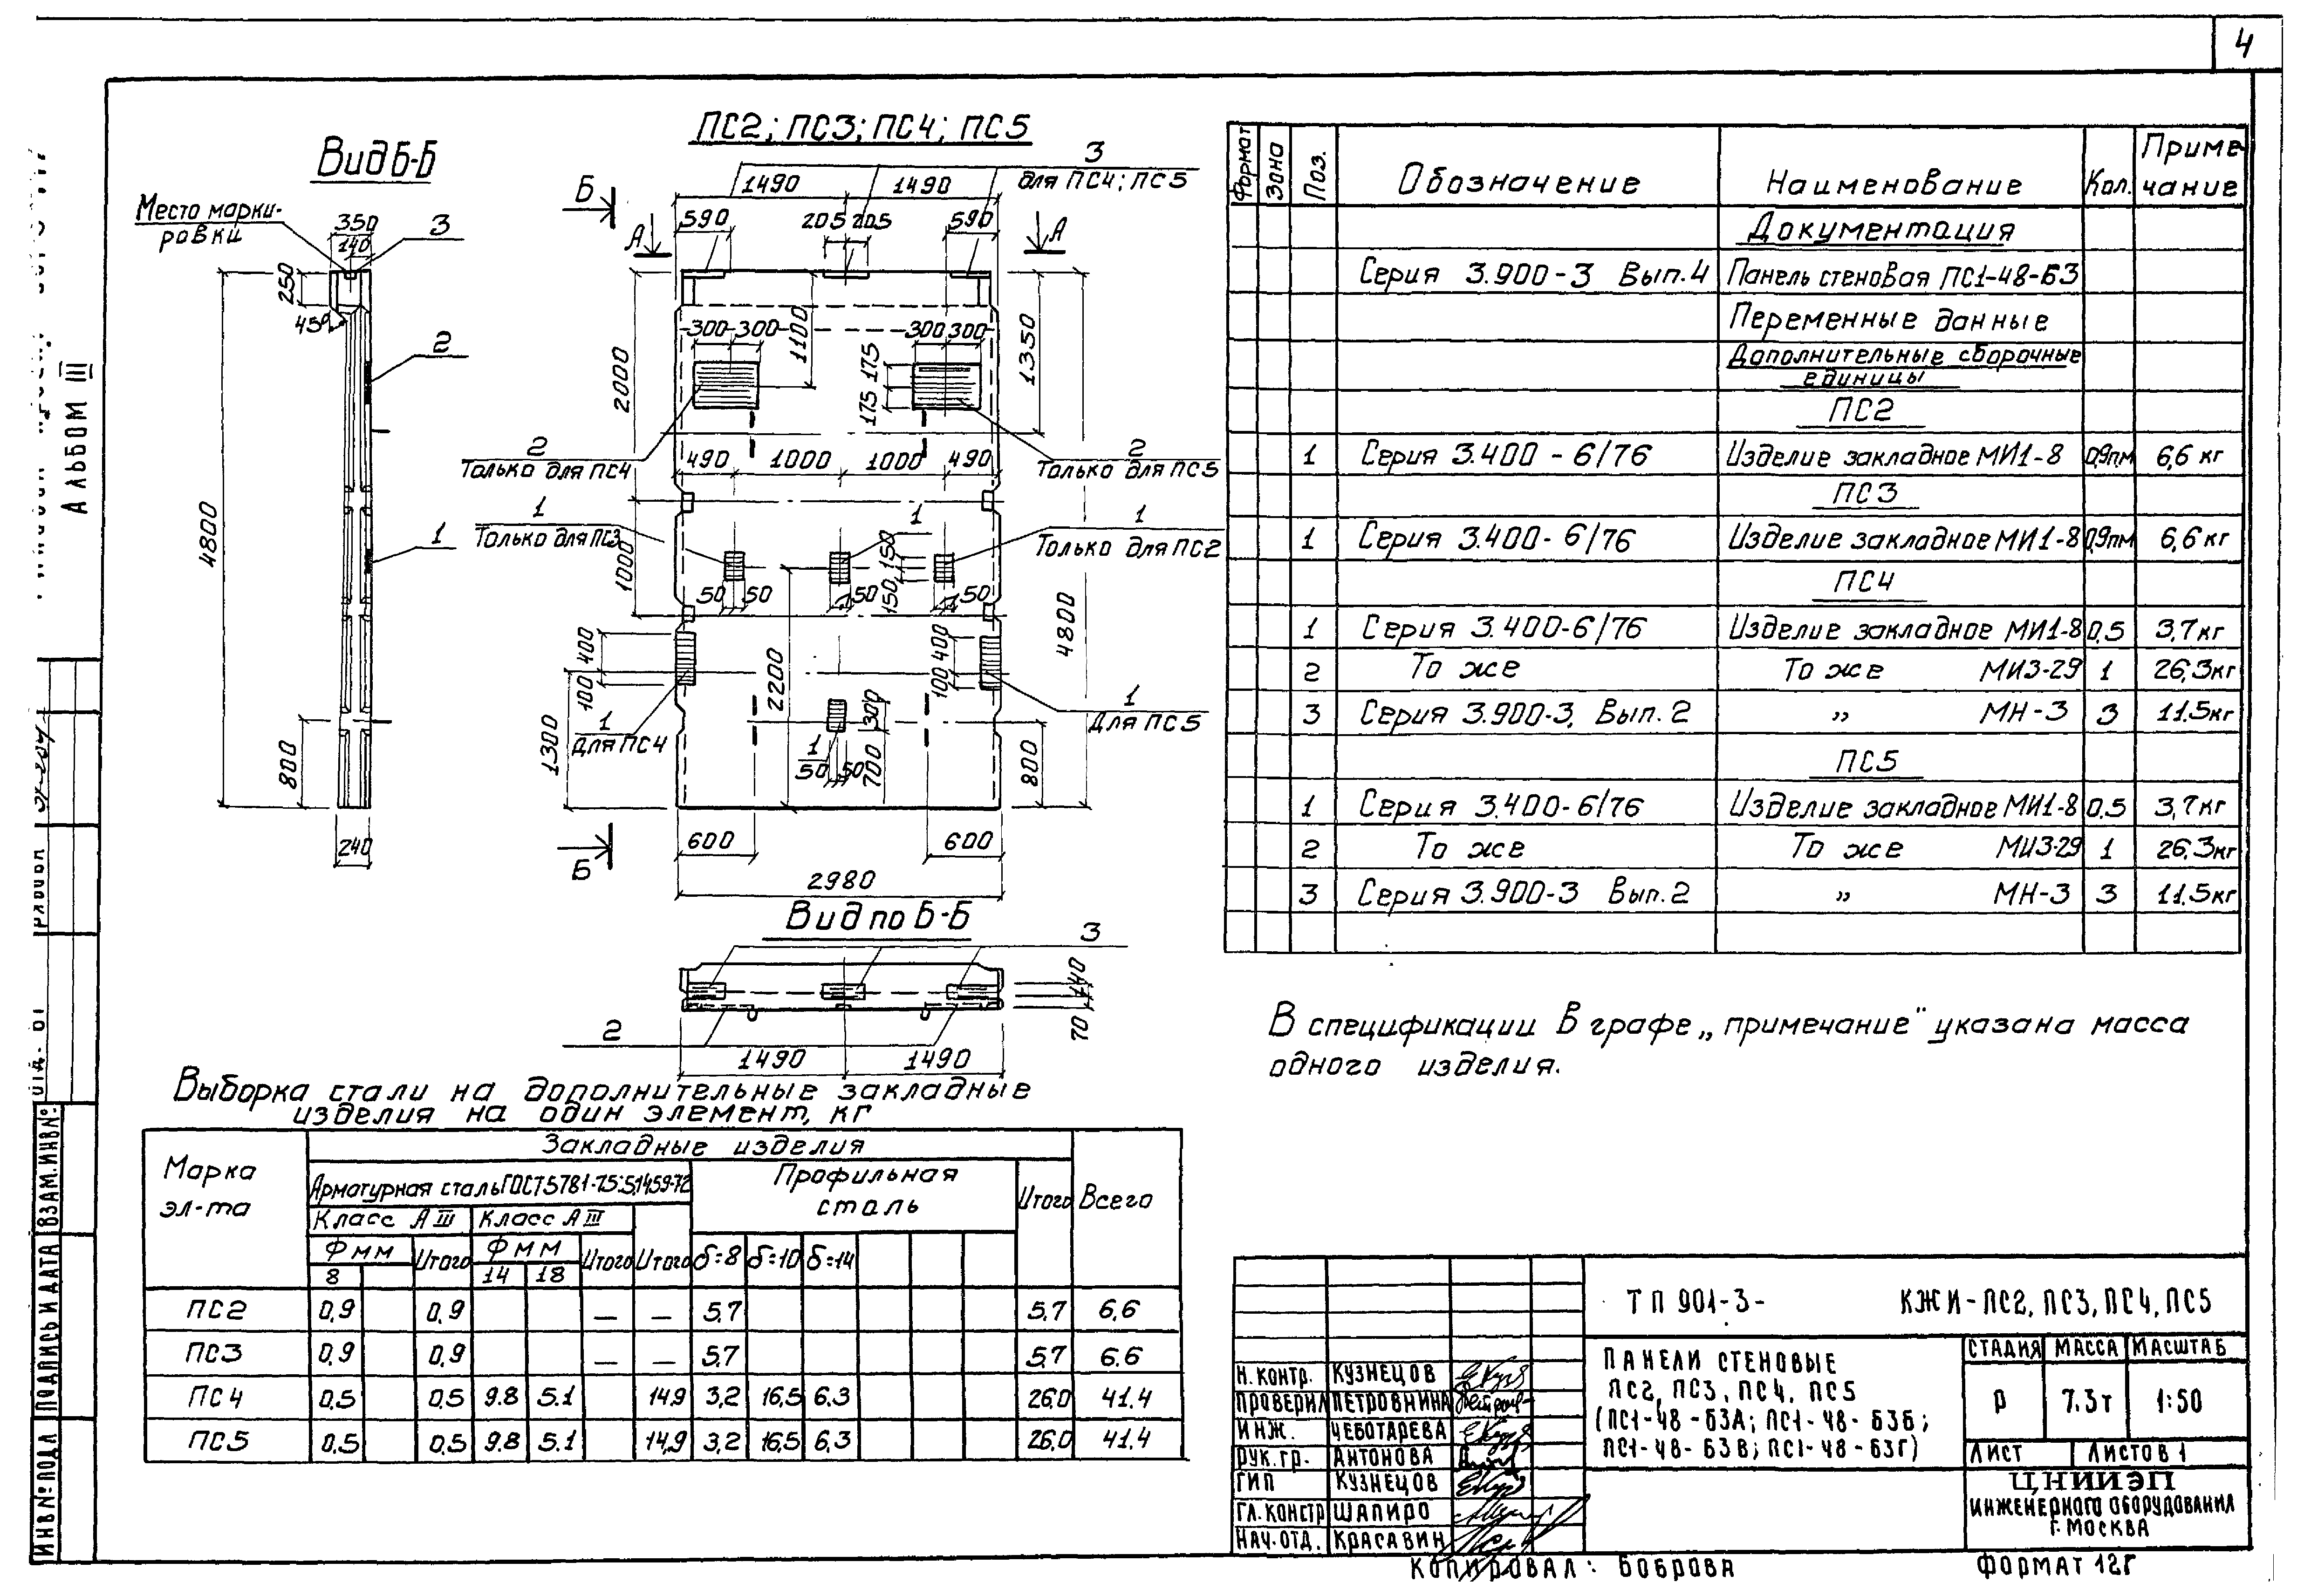 4
ПС2; ПС3; ПС4; ПС5
Вид Б-Б
Место марки-
ровки
350
140
3
250
45°
2
4800
1
800
240
3
для ПС4; ПС5
Б
1490
1490
А
590
205
205
590
А
2000
1100
1350
300
300
300
300
175
175
2
Только для ПС4
490
1000
1000
490
2
Только для ПС5
1
Только для ПС3
1
1
Только для ПС2
1000
150
150
50
50
50
50
4800
400
100
400
100
2200
1
Для ПС4
1
Для ПС5
1300
300
700
1
50
50
800
Б
600
600
2980
Вид по Б-Б
3
140
70
2
1490
1490
Формат
Зона
Поз.
Обозначение
Наименование
Кол.
Приме-
чание
Документация
Серия 3.900-3 Вып.4 Панель стеновая ПС1-48-Б3
Переменные данные
Дополнительные сборочные
единицы
ПС2
1 Серия 3.400-6/76 Изделие закладное МИ1-8 0,9п.м 6,6 кг
ПС3
1 Серия 3.400-6/76 Изделие закладное МИ1-8 0,9пм 6,6 кг
ПС4
1 Серия 3.400-6/76 Изделие закладное МИ1-8 0,5 3,7 кг
2 То же То же МИ3-29 1 26,3кг
3 Серия 3.900-3, Вып.2 „ МН-3 3 11.5кг
ПС5
1 Серия 3.400-6/76 Изделие закладное МИ1-8 0,5 3,7 кг
2 То же То же МИ3-29 1 26,3кг
3 Серия 3.900-3 Вып.2 „ МН-3 3 11.5кг
В спецификации в графе „примечание" указана масса
одного изделия.
Выборка стали на дополнительные закладные
изделия на один элемент, кг
Марка
эл-та
Закладные изделия
Арматурная сталь ГОСТ5781-75:5.1459-72
Профильная
сталь
Итого
Всего
Класс АIII
Класс АIII
Ф мм
Итого
Ф мм
Итого
Итого
δ=8
δ=10
δ=14
8
14
18
ПС2 0,9 0,9 — — 5,7 5,7 6,6
ПС3 0,9 0,9 — — 5,7 5,7 6.6
ПС4 0,5 0,5 9.8 5.1 14,9 3,2 16,5 6.3 26.0 41.4
ПС5 0.5 0,5 9.8 5.1 14,9 3,2 16,5 6,3 26.0 41.4
ТП 901-3- КЖИ-ПС2, ПС3, ПС4, ПС5
ПАНЕЛИ СТЕНОВЫЕ
ПС2, ПС3, ПС4, ПС5
(ПС1-48-Б3А; ПС1-48-Б3Б;
ПС1-48-Б3В; ПС1-48-Б3Г)
СТАДИЯ МАССА МАСШТАБ
Р 7.3т 1:50
ЛИСТ ЛИСТОВ 1
ЦНИИЭП
ИНЖЕНЕРНОГО ОБОРУДОВАНИЯ
Г. МОСКВА
Н. КОНТР. КУЗНЕЦОВ
ПРОВЕРИЛ ПЕТРОВНИНА
ИНЖ. ЧЕБОТАРЕВА
РУК. ГР. АНТОНОВА
ГИП КУЗНЕЦОВ
ГЛ. КОНСТР ШАПИРО
НАЧ. ОТД. КРАСАВИН
КОПИРОВАЛ: БОБРОВА
ФОРМАТ 12Г
АЛЬБОМ III
ИНВ № ПОДЛ
ПОДПИСЬ И ДАТА
ВЗАМ. ИНВ №